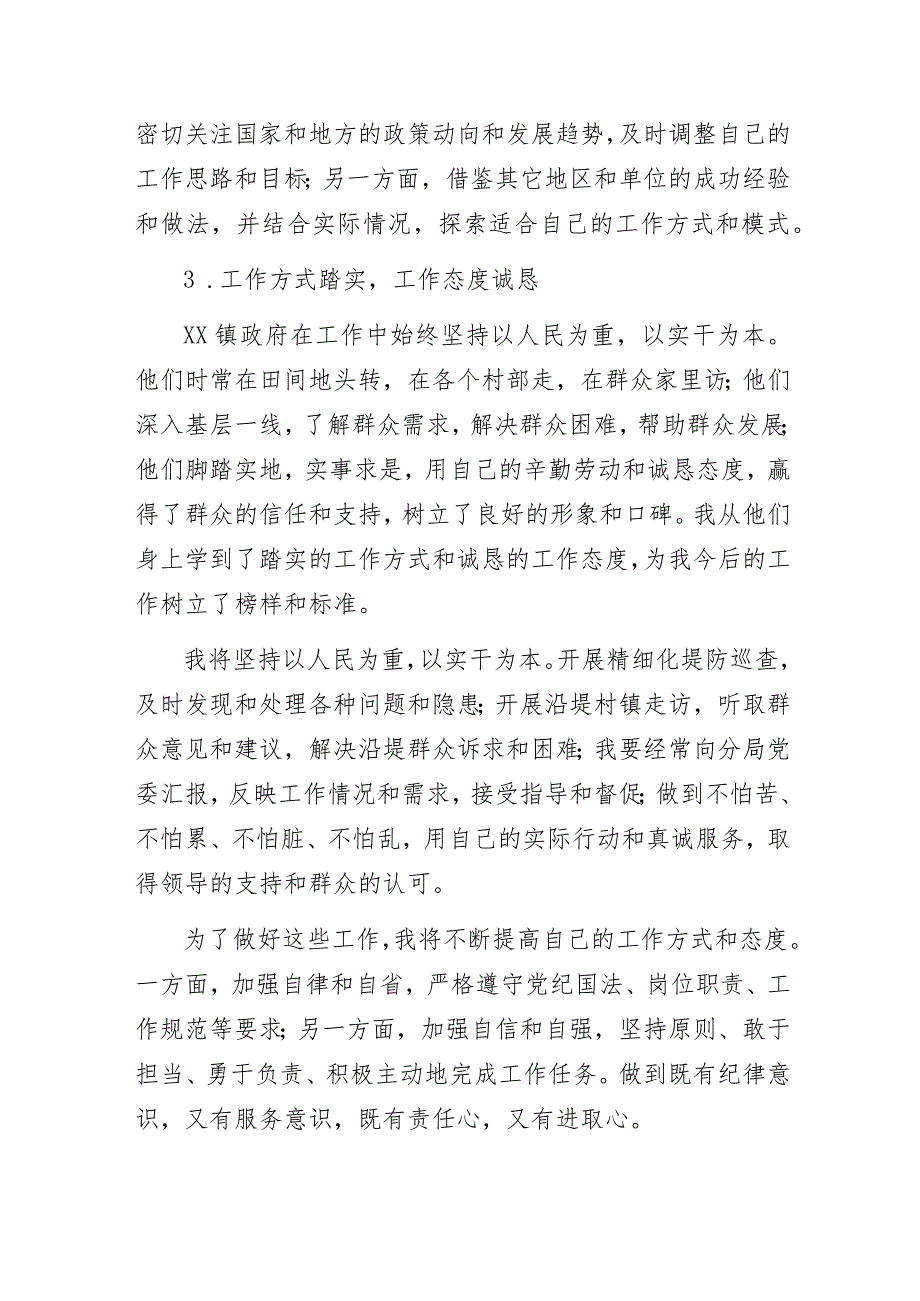 密切关注国家和地方的政策动向和发展趋势，及时调整自己的
工作思路和目标；另一方面，借鉴其它地区和单位的成功经验
和做法，并结合实际情况，探索适合自己的工作方式和模式。
3 .工作方式踏实，工作态度诚恳
XX 镇政府在工作中始终坚持以人民为重，以实干为本。
他们时常在田间地头转，在各个村部走，在群众家里访；他们
深入基层一线，了解群众需求，解决群众困难，帮助群众发展；
他们脚踏实地，实事求是，用自己的辛勤劳动和诚恳态度，赢
得了群众的信任和支持，树立了良好的形象和口碑。我从他们
身上学到了踏实的工作方式和诚恳的工作态度，为我今后的工
作树立了榜样和标准。
我将坚持以人民为重，以实干为本。开展精细化堤防巡查，
及时发现和处理各种问题和隐患；开展沿堤村镇走访，听取群
众意见和建议，解决沿堤群众诉求和困难；我要经常向分局党
委汇报，反映工作情况和需求，接受指导和督促；做到不怕苦、
不怕累、不怕脏、不怕乱，用自己的实际行动和真诚服务，取
得领导的支持和群众的认可。
为了做好这些工作，我将不断提高自己的工作方式和态度。
一方面，加强自律和自省，严格遵守党纪国法、岗位职责、工
作规范等要求；另一方面，加强自信和自强，坚持原则、敢于
担当、勇于负责、积极主动地完成工作任务。做到既有纪律意
识，又有服务意识，既有责任心，又有进取心。